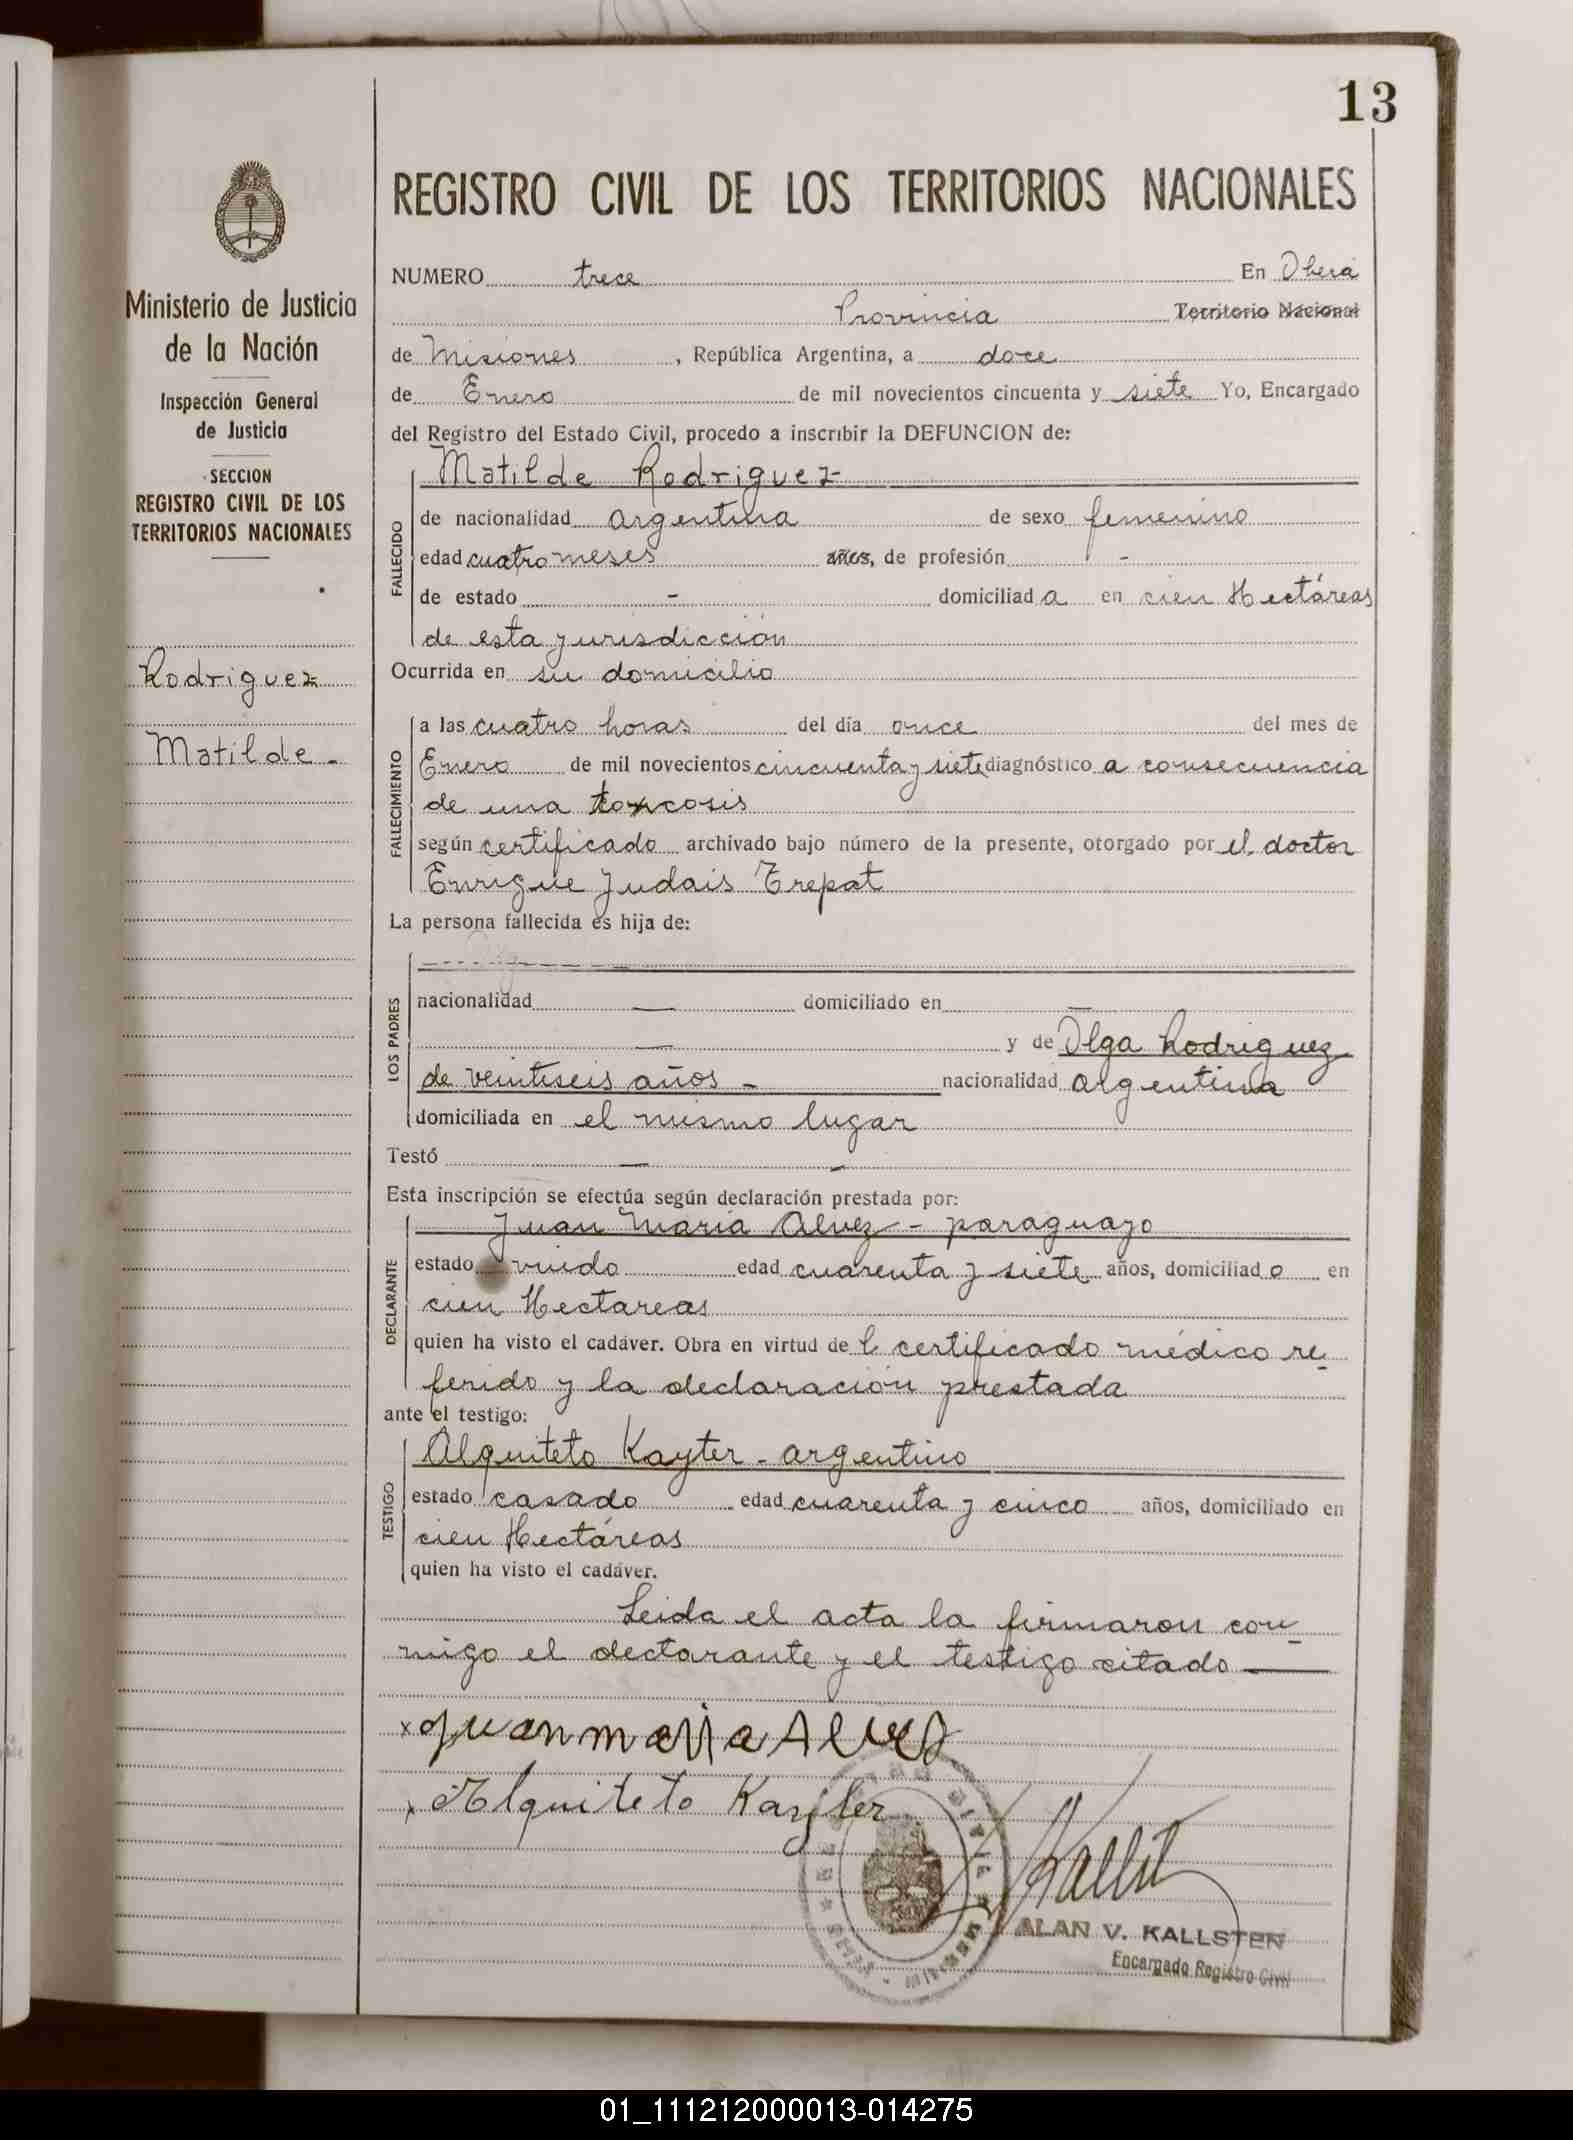 13
REGISTRO CIVIL DE LOS TERRITORIOS NACIONALES
Ministerio de Justicia
de la Nación
Inspección General
de Justicia
SECCION
REGISTRO CIVIL DE LOS
TERRITORIOS NACIONALES
Rodriguez
Matilde -
NUMERO trece En Oberá
Provincia Territorio Nacional
de Misiones, República Argentina, a doce
de Enero de mil novecientos cincuenta y siete Yo, Encargado
del Registro del Estado Civil, procedo a inscribir la DEFUNCION de:
FALLECIDO
Matilde Rodriguez-
de nacionalidad argentina de sexo femenino
edad cuatro meses años, de profesión -
de estado - domiciliada en cien Hectáreas
de esta jurisdicción
Ocurrida en su domicilio
FALLECIMIENTO
a las cuatro horas del día once del mes de
Enero de mil novecientos cincuenta y siete diagnóstico a consecuencia
de una toxcosis
según certificado archivado bajo número de la presente, otorgado por el doctor
Enrique Judais Trepat
La persona fallecida es hija de:
LOS PADRES
nacionalidad — domiciliado en —
— y de Olga Rodriguez
de veintiseis años - nacionalidad argentina
domiciliada en el mismo lugar
Testó — -
Esta inscripción se efectúa según declaración prestada por:
DECLARANTE
Juan Maria Alvez - paraguayo
estado viudo edad cuarenta y siete años, domiciliado en
cien Hectareas
quien ha visto el cadáver. Obra en virtud del certificado médico re-
ferido y la declaración prestada
ante el testigo:
TESTIGO
Alquiteto Kayter - argentino
estado casado edad cuarenta y cinco años, domiciliado en
cien Hectáreas
quien ha visto el cadáver.
Leida el acta la firmaron con-
migo el declarante y el testigo citado —
x Juan maria Alvez
x Alquiteto Kayter
Kallsten
ALAN V. KALLSTEN
Encargado Registro Civil
01_111212000013-014275